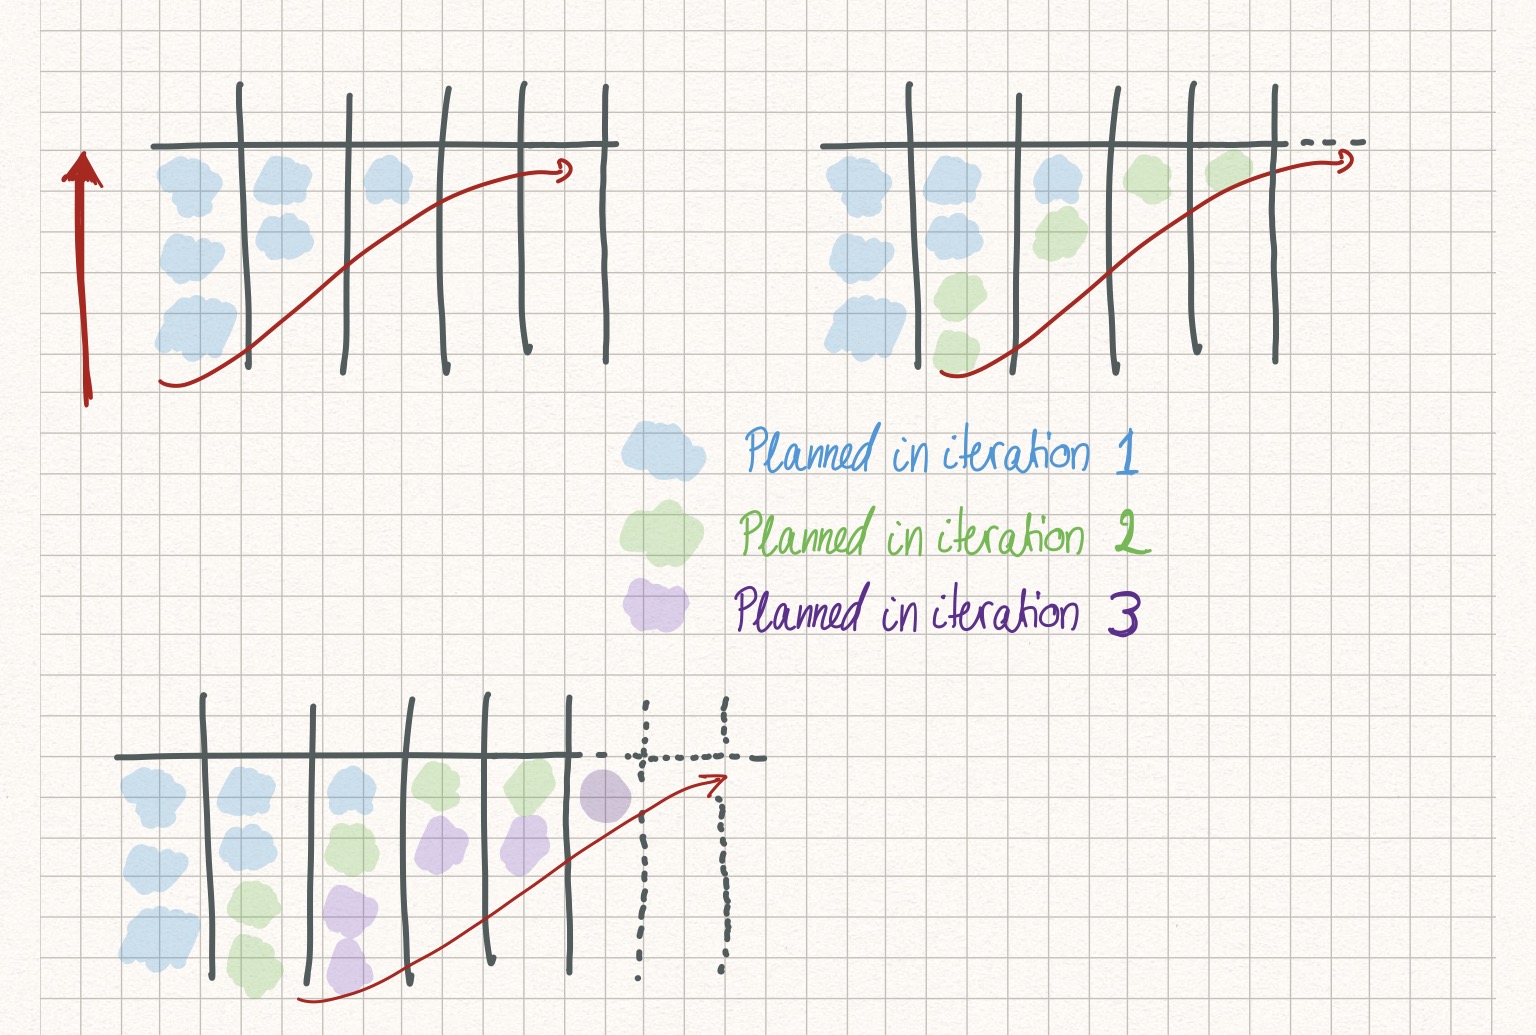 Planned in iteration 1
Planned in iteration 2
Planned in iteration 3